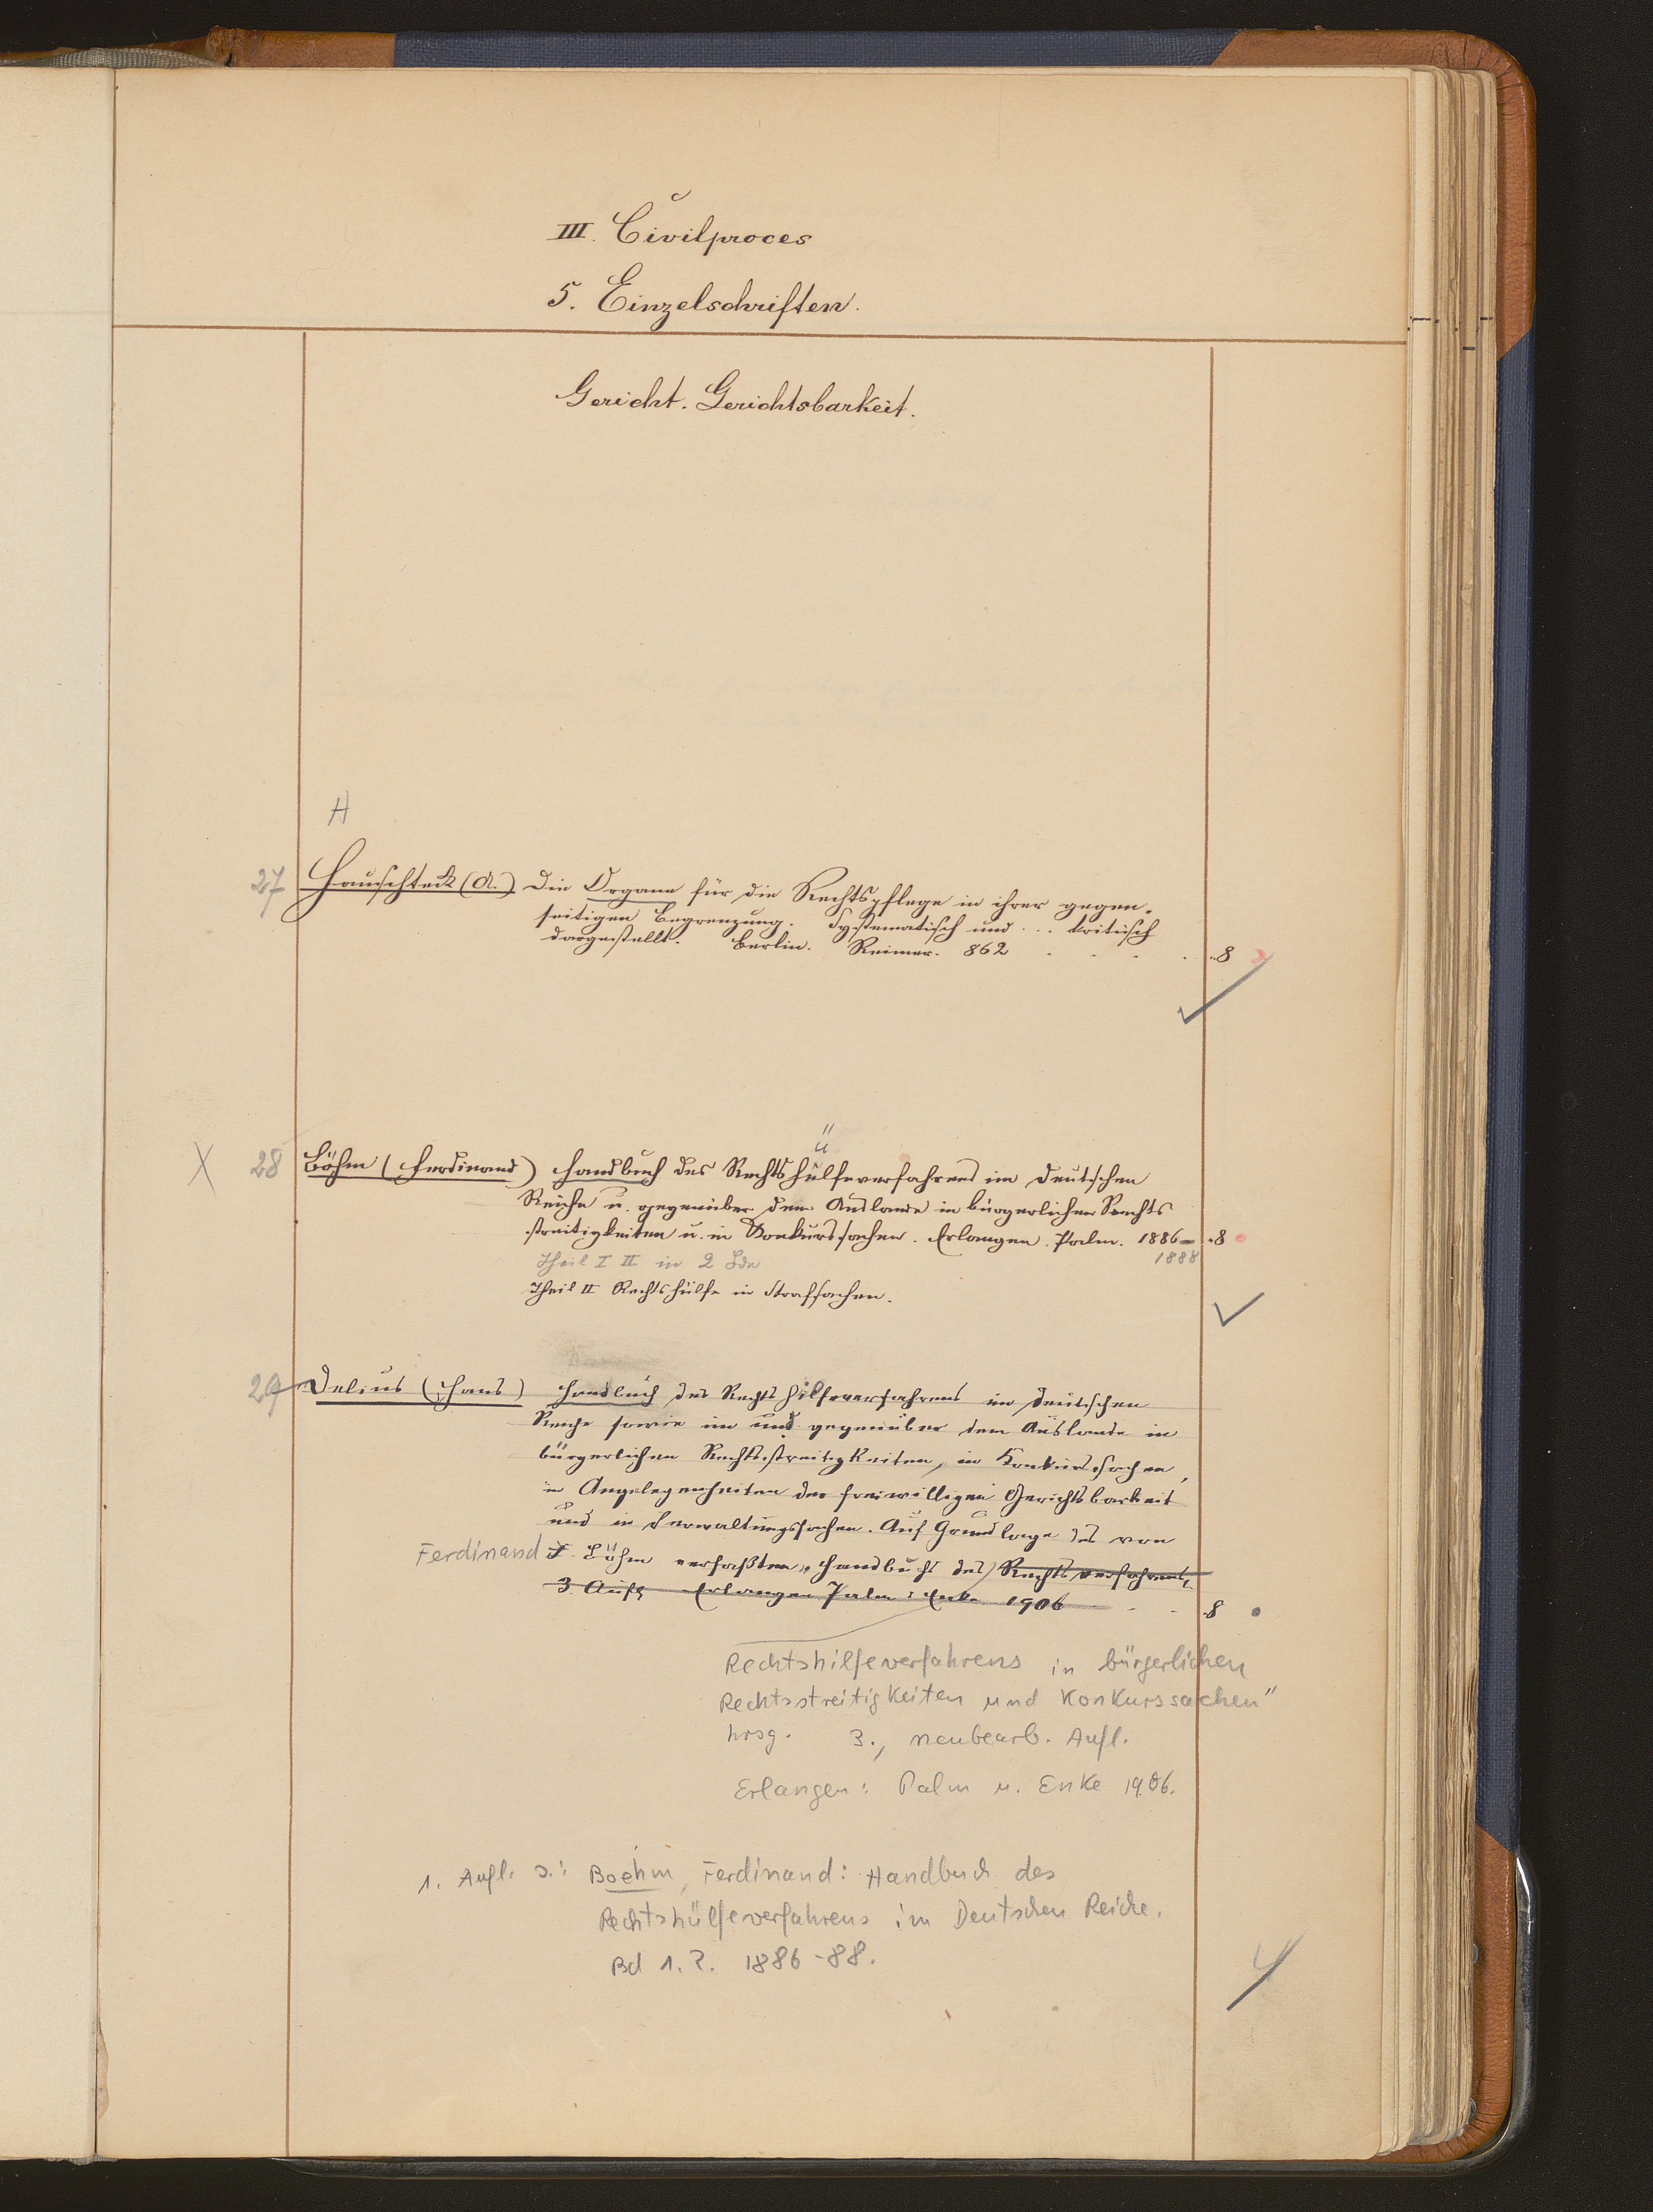 III. Civilproces
5. Einzelschriften.
Gericht. Gerichtsbarkeit.
H
27 Hauschteck (A.) Die Organe für die Rechtspflege in ihrer gegen-
seitigen Begrenzung. Systematisch und ... kritisch
dargestellt. Berlin. Reimer. 862 . . . . . 8
ü
X 28 Böhm (Ferdinand) Handbuch des Rechtshülfeverfahrens im Deutschen
Reiche u. gegenüber dem Auslande in bürgerlichen Rechts
streitigkeiten u. in Konkurssachen. Erlangen. Palm. 1886- .8
1888
Theil I II in 2 Bdn
Theil II Rechtshülfe in Strafsachen.
29 Delius (Hans) Handbuch des Rechtshilfeverfahrens im Deutschen
Reiche sowie im und gegenüber dem Auslande in
bürgerlichen Rechtsstreitigkeiten, in Konkurssachen,
in Angelegenheiten der freiwilligen Gerichtsbarkeit
und in Verwaltungssachen. Auf Grundlage des von
Ferdinand F. Böhm verfaßten „Handbuchs des Rechtsverfahrens,
3. Aufl Erlangen Palm & Enke 1906 . . 8
Rechtshilfeverfahrens in bürgerlichen
Rechtsstreitigkeiten und Konkurssachen"
hrsg. 3., neubearb. Aufl.
Erlangen: Palm u. Enke 1906.
1. Aufl. s.: Boehm, Ferdinand: Handbuch des
Rechtshülfeverfahrens im Deutschen Reiche.
Bd 1.2. 1886-88.